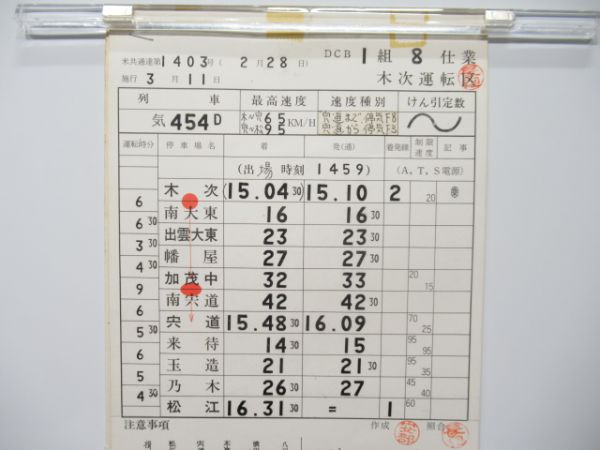 米共通達第1403号(2月28日) DCB 1組 8仕業
施行 3月11日 木次運転区
列車 最高速度 速度種別 けん引定数
気 454D 木〜宍 65 宍〜松 95 KM/H 宍道まで 停気F8 宍道から 停気F3
運転時分 停車場名 着 発(通) 着発線 制限速度 記事
(出場時刻 1459) (A,T,S電源)
木次 (15.04 30) 15.10 2 20
6
南大東 16 16 30
6 30
出雲大東 23 23 30
3 30
幡屋 27 27 30
4 30
加茂中 32 33 20 15
9
南宍道 42 42 30
6
宍道 15.48 30 16.09 70 25
5 30
来待 14 30 15 95 95
6
玉造 21 21 30 95 35
5
乃木 26 30 27 45 40
4 30
松江 16.31 30 = 1 60
注意事項 作成 照合